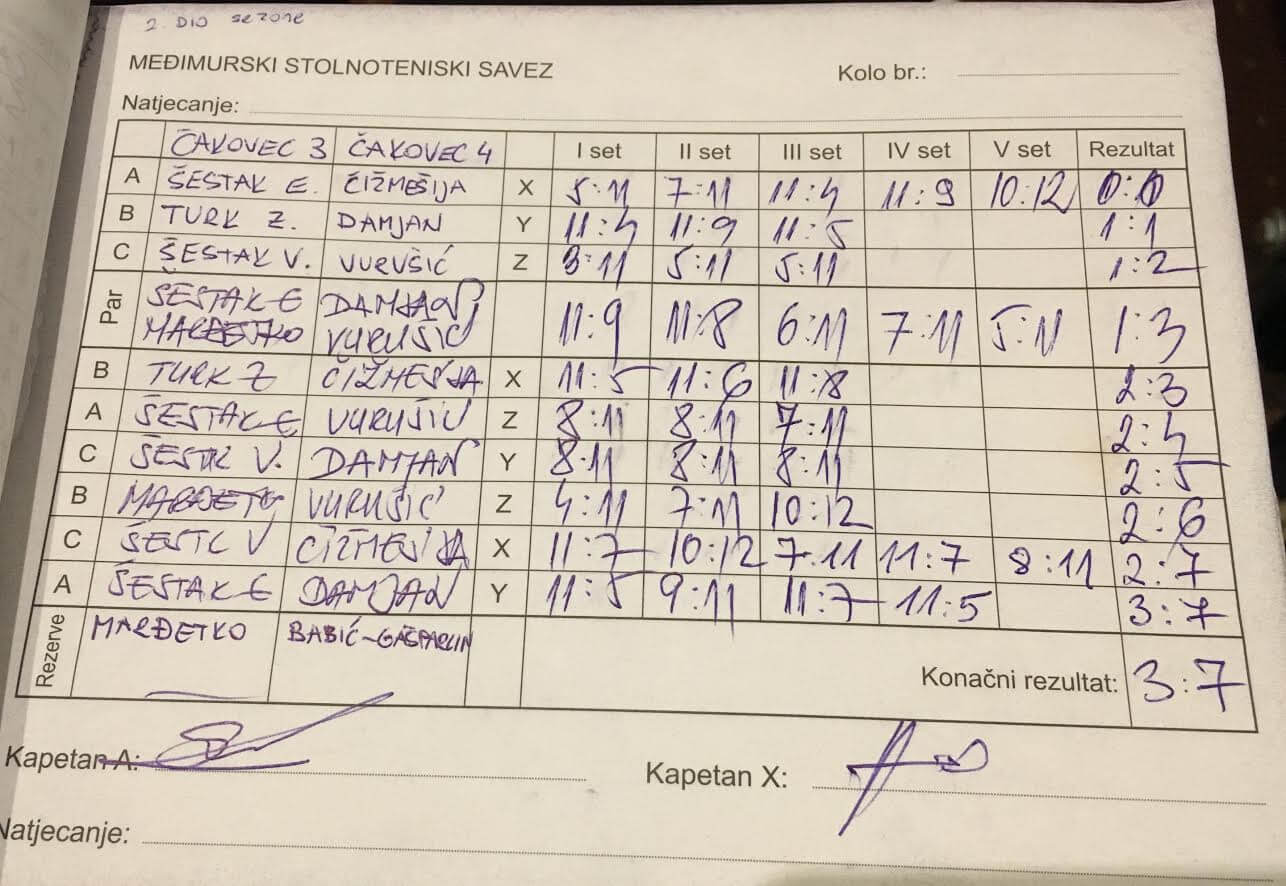 2. DIO sezone
MEĐIMURSKI STOLNOTENISKI SAVEZ
Kolo br.:
Natjecanje:
ČAKOVEC 3 ČAKOVEC 4 I set II set III set IV set V set Rezultat
A ŠESTAK E. ČIŽMEŠIJA X 5:11 7:11 11:4 11:9 10:12 0:1
B TURK Z. DAMJAN Y 11:4 11:9 11:5 1:1
C ŠESTAK V. VURUŠIĆ Z 3:11 5:11 5:11 1:2
Par ŠESTAK E DAMJAN 11:9 11:8 6:11 7:11 5:11 1:3
MARĐETKO VURUŠIĆ
B TURK Z ČIŽMEŠIJA X 11:5 11:6 11:8 2:3
A ŠESTAK E VURUŠIĆ Z 8:11 8:11 7:11 2:4
C ŠESTK V. DAMJAN Y 8:11 8:11 8:11 2:5
B MARĐETKO VURUŠIĆ Z 4:11 7:11 10:12 2:6
C ŠESTK V ČIŽMEŠIJA X 11:7 10:12 7:11 11:7 8:11 2:7
A ŠESTAK E DAMJAN Y 11:5 9:11 11:7 11:5 3:7
Rezerve MARĐETKO BABIĆ-GAŠPARLIN
Konačni rezultat: 3:7
Kapetan A:
Kapetan X:
Natjecanje: